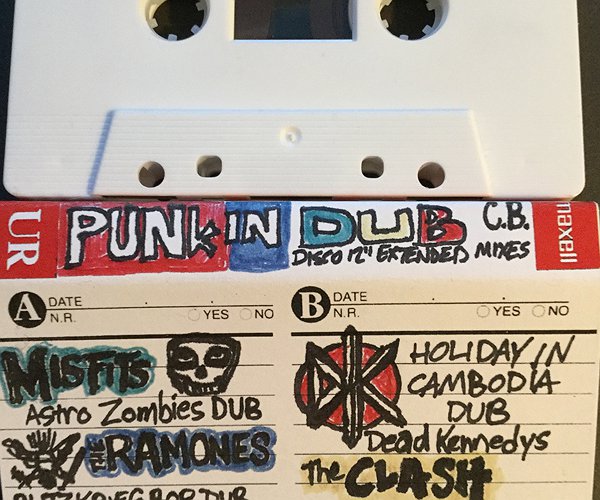 UR PUNK IN DUB C.B. maxell
DISCO 12" EXTENDED MIXES
A DATE
N.R. YES NO
MISFITS
Astro Zombies DUB
THE RAMONES
BLITZKRIEG BOP DUB
B DATE
N.R. YES NO
DK HOLIDAY IN
CAMBODIA
DUB
Dead Kennedys
The CLASH